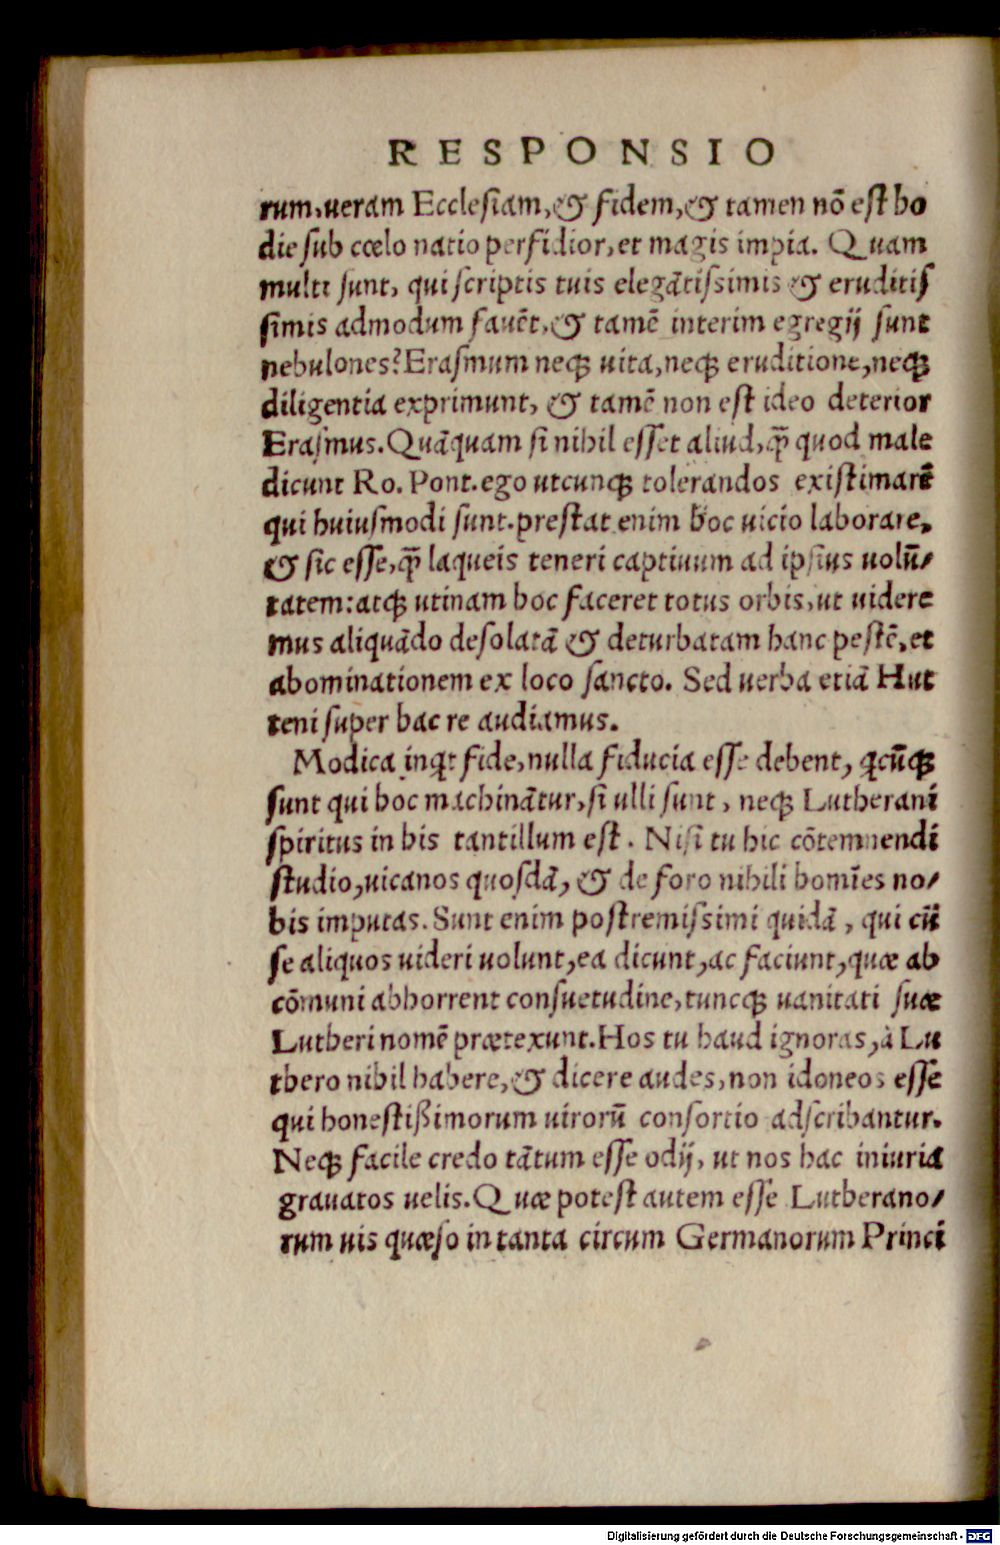 RESPONSIO
rum, ueram Ecclesiam, & fidem, & tamen nõ est ho
die sub cœlo natio perfidior, et magis impia. Quam
multi sunt, qui scriptis tuis elegãtissimis & eruditis
simis admodum fauẽt, & tamẽ interim egregij sunt
nebulones? Erasmum neqꝫ uita, neqꝫ eruditione, neqꝫ
diligentia exprimunt, & tamẽ non est ideo deterior
Erasmus. Quãquam si nihil esset aliud, q̃ quod male
dicunt Ro. Pont. ego utcunqꝫ tolerandos existimarẽ
qui huiusmodi sunt. prestat enim hoc uicio laborare,
& sic esse, q̃ laqueis teneri captiuum ad ipsius uolũ/
tatem: atqꝫ utinam hoc faceret totus orbis, ut uidere
mus aliquãdo desolatã & deturbatam hanc pestẽ, et
abominationem ex loco sancto. Sed uerba etiã Hut
teni super hac re audiamus.
Modica inq̃t fide, nulla fiducia esse debent, q̃cũqꝫ
sunt qui hoc machinãtur, si ulli sunt, neqꝫ Lutherani
spiritus in his tantillum est. Nisi tu hic cõtemnendi
studio, uicanos quosdã, & de foro nihili homĩes no/
bis imputas. Sunt enim postremissimi quidã, qui cũ
se aliquos uideri uolunt, ea dicunt, ac faciunt, quæ ab
cõmuni abhorrent consuetudine, tuncqꝫ uanitati suæ
Lutheri nomẽ prætexunt. Hos tu haud ignoras, à Lu
thero nihil habere, & dicere audes, non idoneos esse
qui honestißimorum uirorũ consortio adscribantur.
Neqꝫ facile credo tãtum esse odij, ut nos hac iniuria
grauatos uelis. Quæ potest autem esse Lutherano/
rum uis quæso in tanta circum Germanorum Princi
Digitalisierung gefördert durch die Deutsche Forschungsgemeinschaft - DFG